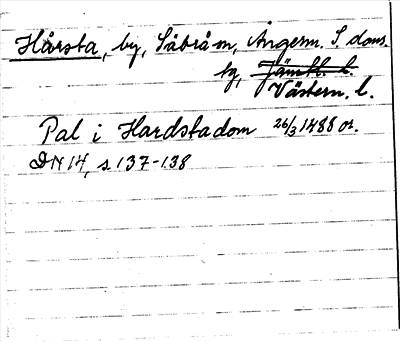 Hårsta, by, Säbrå sn, Ångerm. S. doms.
tg, Jämtl. l.
Västern. l.
Pal i Hardstadom 26/3 1488 or.
DN 14, s. 137-138